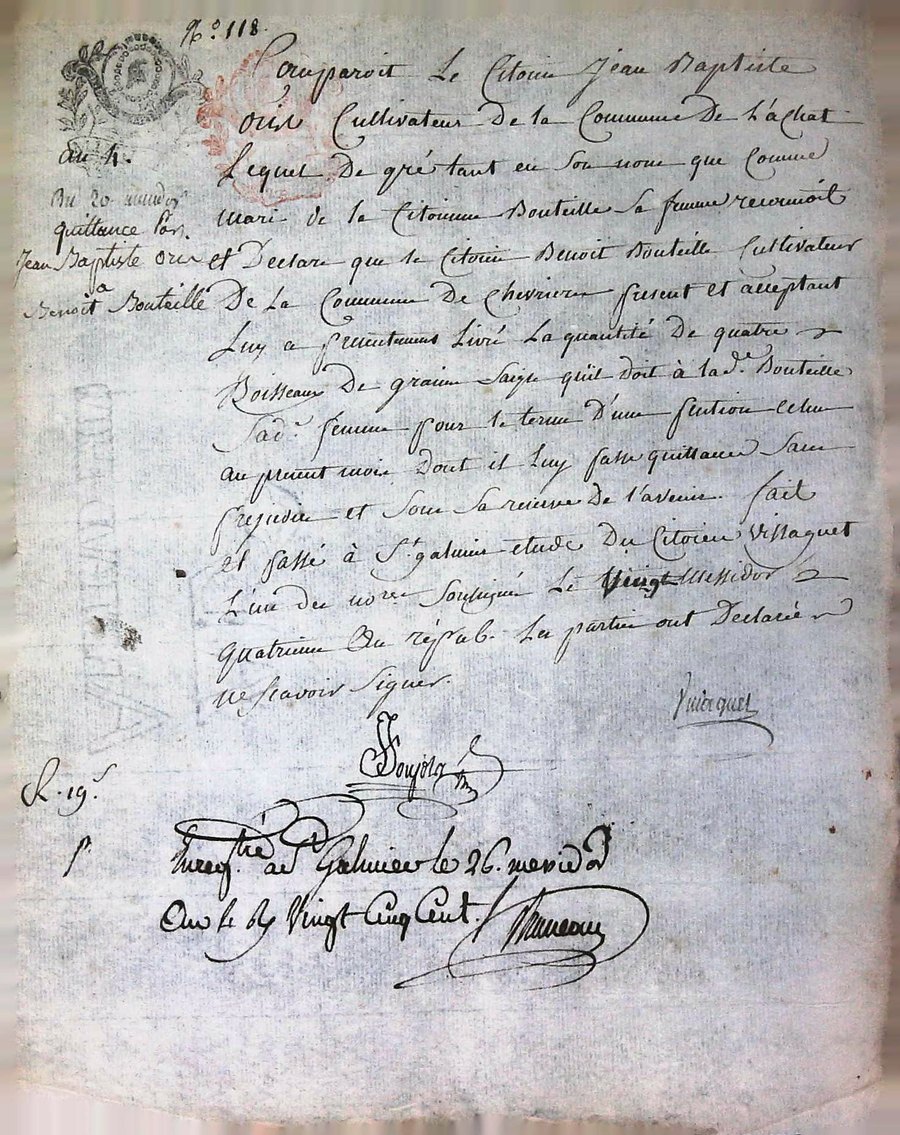 N.° 118.
Comparoit Le Citoien Jean Baptiste
Oriol Cultivateur De la Commune De L'achat
Lequel De gré tant en Son nom que Comme
mari de la Citoienne Bouteille Sa femme reconnoit
et Declare que le Citoien Benoit Bouteille Cultivateur
De La Commune De Chevriere present et acceptant
Luy a presentement Livré La quantité De quatre
Boisseaux De graine Saigle qu'il doit à lad.e Bouteille
Sad.e femme pour le terme D'une pention echue
au present mois Dont il Luy passe quittance Sans
prejudice et Sous Sa reserve De l'avenir. fait
et passé à St galmier etude Du Citoien Vissaguet
L'un des no.res Soussigné Le Vingt Messidor
quatrieme De répub. Les parties ont Declaré
ne Scavoir Signer.
an 4.
Du 20 messidor
quittance par
Jean Baptiste
a
Benoit Bouteille
R. 19 s
Enregistré a St Galmier le 26. messidor
Vingt Cinq Cent.